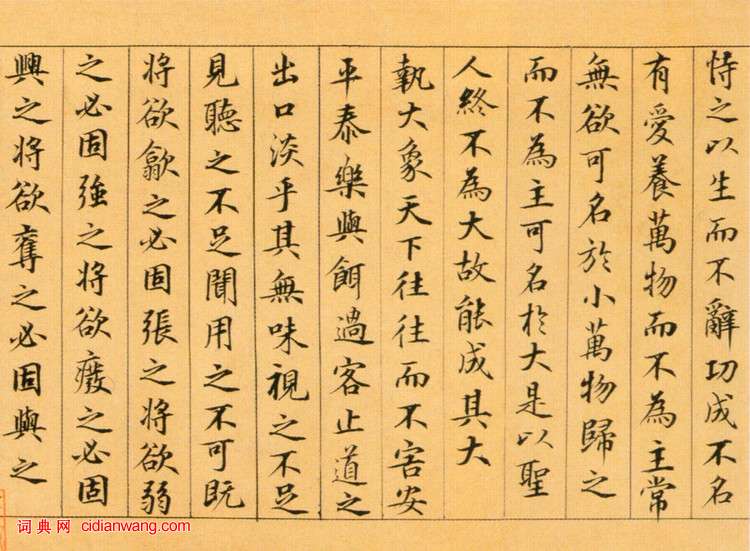 恃之以生而不辭功成不名
有愛養萬物而不為主常
無欲可名於小萬物歸之
而不為主可名於大是以聖
人終不為大故能成其大
執大象天下往往而不害安
平泰樂與餌過客止道之
出口淡乎其無味視之不足
見聽之不足聞用之不可既
将欲歙之必固張之将欲弱
之必固強之将欲廢之必固
興之将欲奪之必固與之
词典网 cidianwang.com